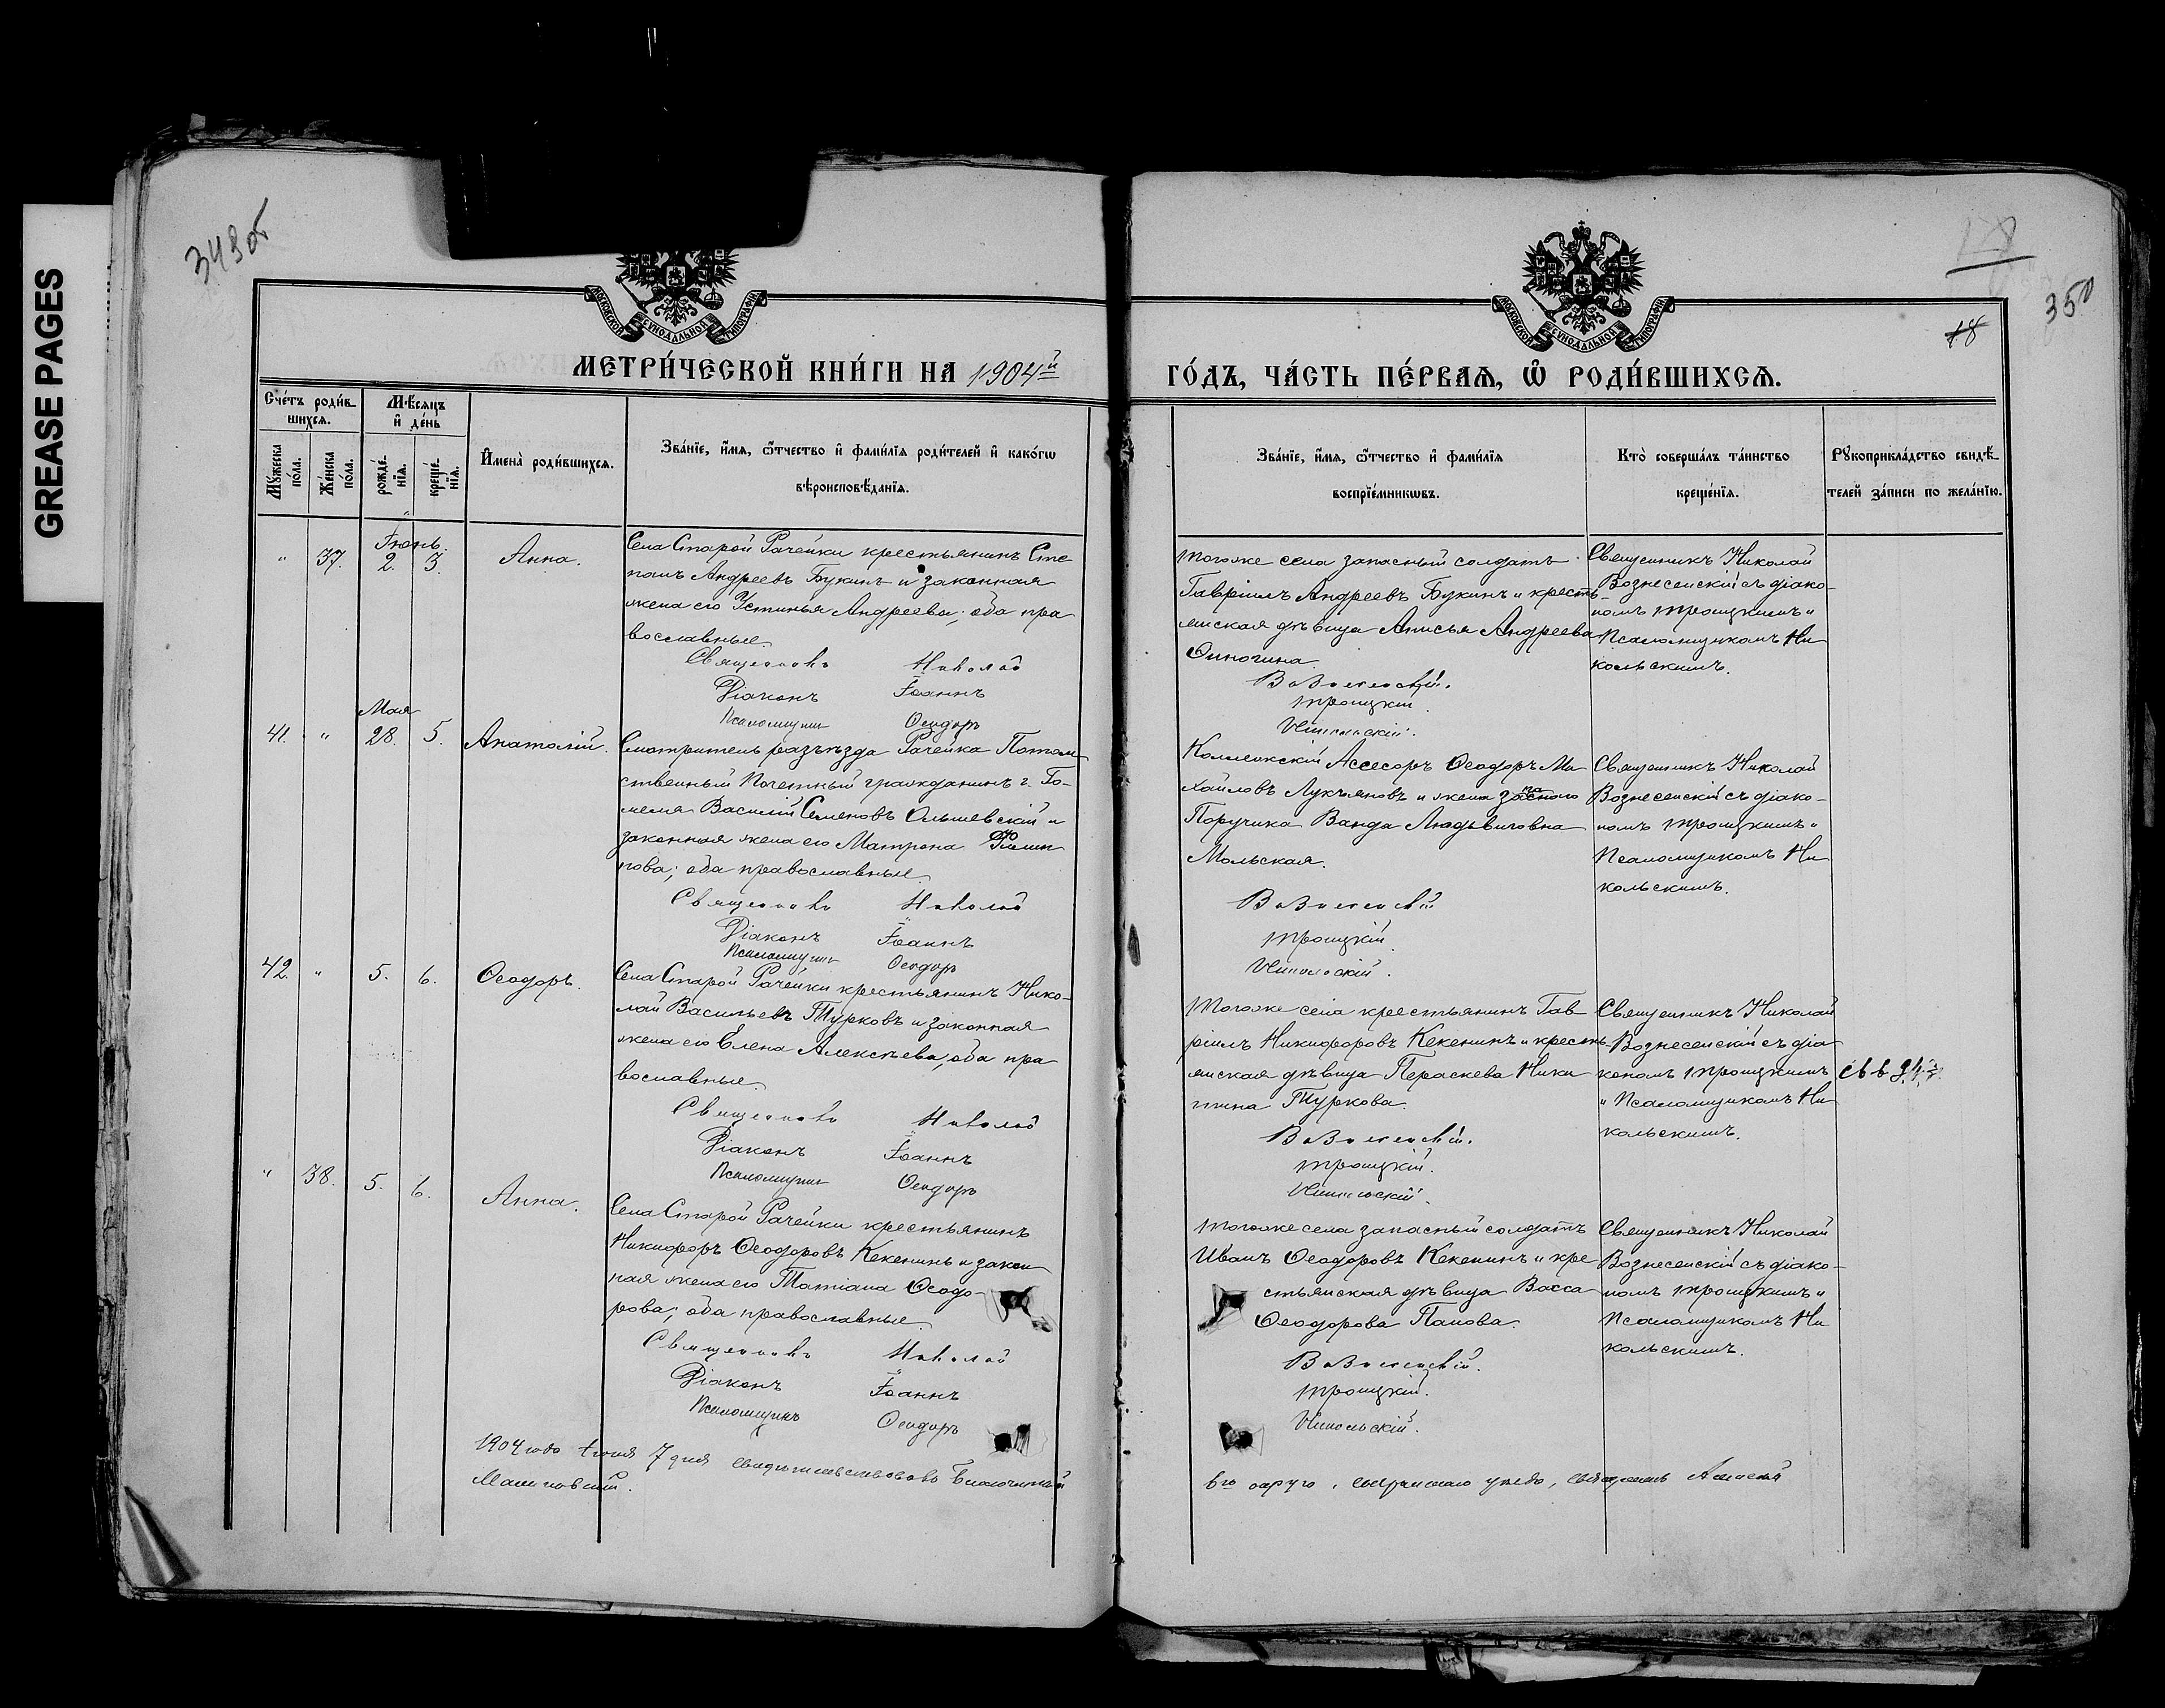 GREASE PAGES
349 об
18
350
18
МОСКОВСКОЙ СѴНОДАЛЬНОЙ ТИПОГРАФІИ
МОСКОВСКОЙ СѴНОДАЛЬНОЙ ТИПОГРАФІИ
МЕТРИ́ЧЕСКОЙ КНИ́ГИ НА 1904й
ГО́ДЪ, ЧА́СТЬ ПЕ́РВАѦ, Ѡ҆ РОДИ́ВШИХСѦ.
Сче́тъ роди́в-
шихсѧ.
Мѣ́сѧцъ
и҆ де́нь
Мꙋ́жеска
по́ла.
Же́нска
по́ла.
рожде́-
нїѧ.
креще́-
нїѧ.
И҆мена̀ роди́вшихсѧ.
Зва́нїе, и҆́мѧ, ѻ҆́тчество и҆ фами́лїѧ роди́телей и҆ како́гѡ
вѣроисповѣ́данїѧ.
Зва́нїе, и҆́мѧ, ѻ҆́тчество и҆ фами́лїѧ
воспрїе́мникѡвъ.
Кто̀ соверша́лъ та́инство
креще́нїѧ.
Рꙋкоприкла́дство свидѣ́-
телей за́писи по жела́нїю.
"
37.
Іюнь.
2.
3.
Анна.
Села Старой Рачейки крестьянинъ Сте
панъ Андреевъ Букинъ и законная
жена его Устинья Андреева; оба пра
вославные.
Священникъ Николай
Діаконъ Іоаннъ
Псаломщикъ Ѳеодоръ
тогоже села запасный солдатъ
Гавріилъ Андреевъ Букинъ и кресть-
янская дѣвица Анисья Андреева
Финогина.
Вознесенскій.
Троицкій.
Никольскій.
Священникъ Николай
Вознесенскій съ діако-
номъ Троицкимъ и
Псаломщикомъ Ни
кольскимъ.
41.
"
Мая
28.
5.
Анатолій.
Смотритель разъѣзда Рачейка Потом
ственный Почетный гражданинъ г. Го-
меля Василій Семеновъ Ольшевскій и
законная жена его Матрона Филип
пова; оба православные.
Священникъ Николай
Діаконъ Іоаннъ
Псаломщикъ Ѳеодоръ
Коллежскій Ассесоръ Ѳеодоръ Ми
хайловъ Лукьяновъ и жена запаснаго
Поручика Ванда Людвиговна
Мольская.
Вознесенскій
Троицкій.
Никольскій.
Священникъ Николай
Вознесенскій съ діако-
номъ Троицкимъ и
Псаломщикомъ Ни
кольскимъ.
42.
"
5.
6.
Ѳеодоръ.
Села Старой Рачейки крестьянинъ Нико-
лай Васильевъ Турковъ и законная
жена его Елена Алексѣева; оба пра
вославные.
Священникъ Николай
Діаконъ Іоаннъ
Псаломщикъ Ѳеодоръ
Тогоже села крестьянинъ Гав
ріилъ Никифоровъ Кекенинъ и кресть-
янская дѣвица Параскева Ники
тина Туркова.
Вознесенскій.
Троицкій.
Никольскій.
Священникъ Николай
Вознесенскій съ діа
кономъ Троицкимъ
и Псаломщикомъ Ни
кольскимъ.
"
38.
5.
6.
Анна.
Села Старой Рачейки крестьянинъ
Никифоръ Ѳеодоровъ Кекенинъ и закон
ная жена его Татіана Ѳеодо-
рова; оба православные.
Священникъ Николай
Діаконъ Іоаннъ
Псаломщикъ Ѳеодоръ
Тогоже села запасный солдатъ
Иванъ Ѳеодоровъ Кекенинъ и кре
стьянская дѣвица Васса
Ѳеодорова Панова.
Вознесенскій.
Троицкій.
Никольскій.
Священникъ Николай
Вознесенскій съ діако-
номъ Троицкимъ и
Псаломщикомъ Ни
кольскимъ.
1904 года Іюня 7 дня свидѣтельствовалъ Благочинный
6го округа, Сызранскаго уѣзда, священникъ Алексій